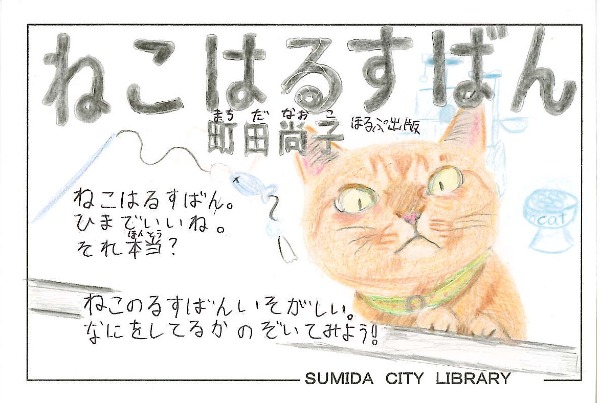 ねこはるすばん
まちだなおこ
町田尚子 ほるぷ出版
ねこはるすばん。
ひまでいいね。
ほんとう
それ本当？
cat
ねこのるすばんいそがしい。
なにをしてるかのぞいてみよう!
SUMIDA CITY LIBRARY